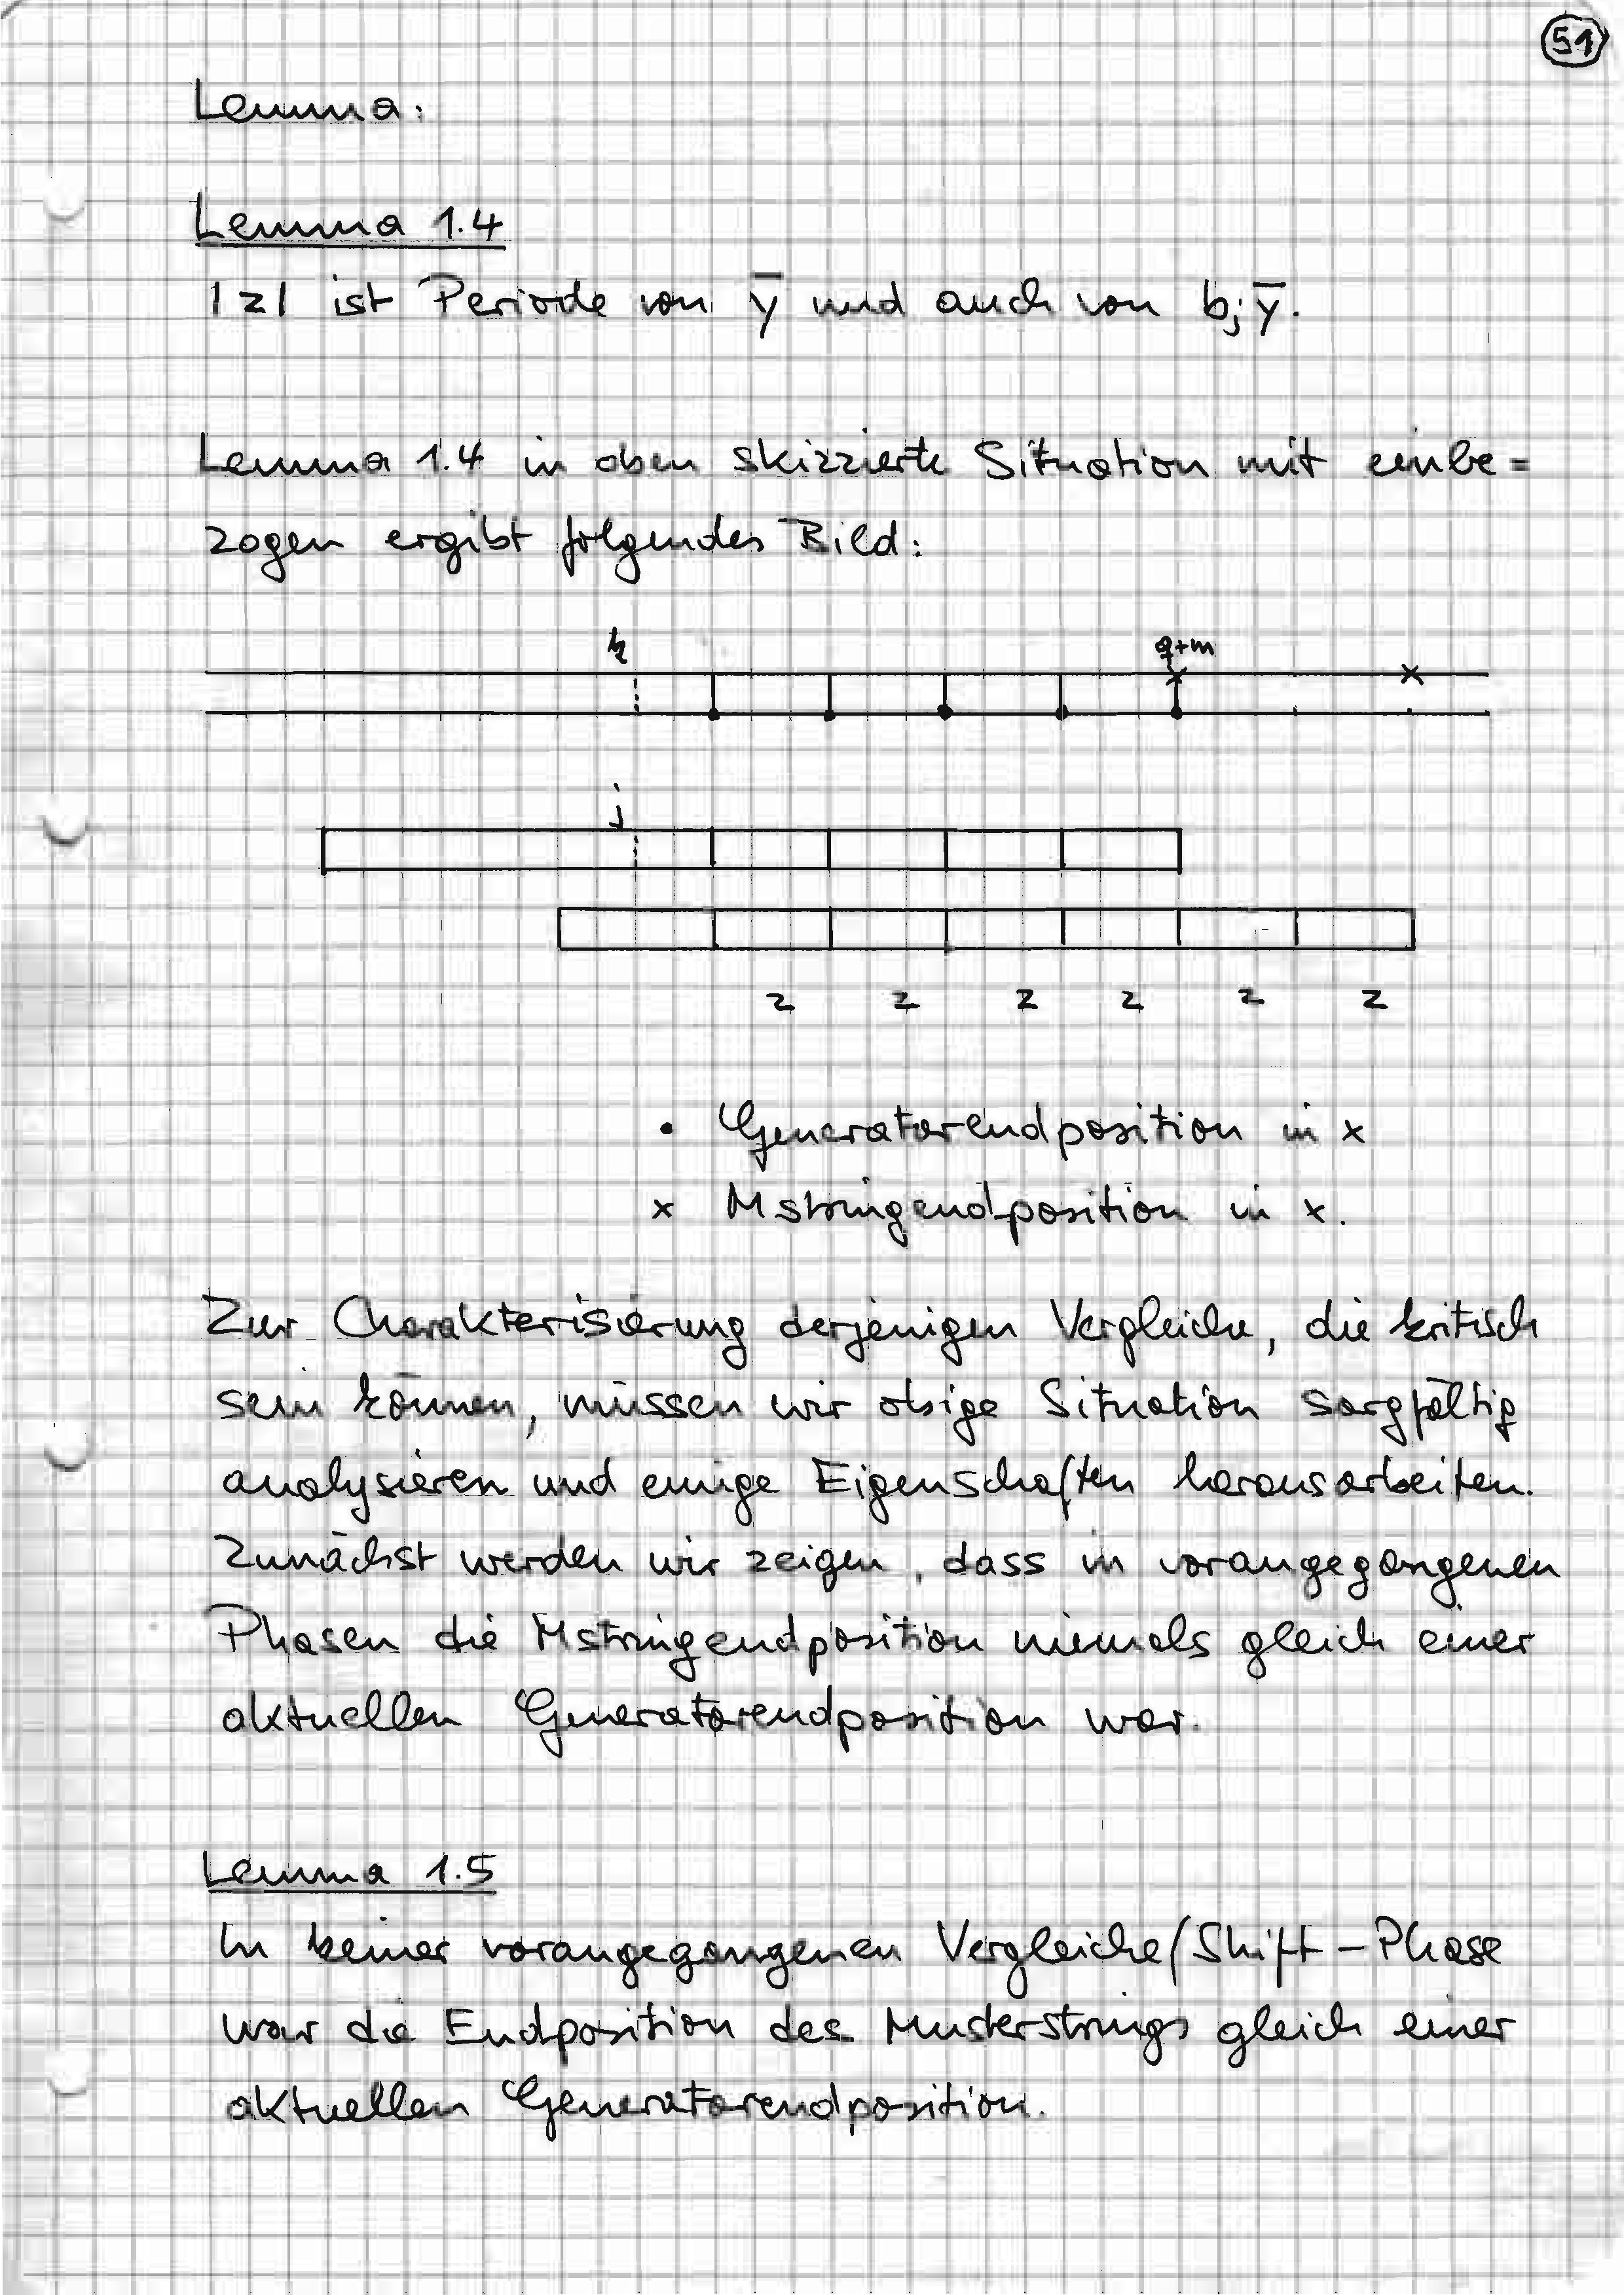 51
Lemma:
Lemma 1.4
|z| ist Periode von ȳ und auch von bⱼȳ.
Lemma 1.4 in oben skizzierte Situation mit einbe=
zogen ergibt folgendes Bild:
k q+m
j
z z z z z z
• Generatorendposition in x
x Mstringendposition in x.
Zur Charakterisierung derjenigen Vergleiche, die kritisch
sein können, müssen wir obige Situation sorgfältig
analysieren und einige Eigenschaften herausarbeiten.
Zunächst werden wir zeigen, dass in vorangegangenen
Phasen die Mstringendposition niemals gleich einer
aktuellen Generatorendposition war.
Lemma 1.5
In keiner vorangegangenen Vergleiche/Shift-Phase
war die Endposition des Musterstrings gleich einer
aktuellen Generatorendposition.